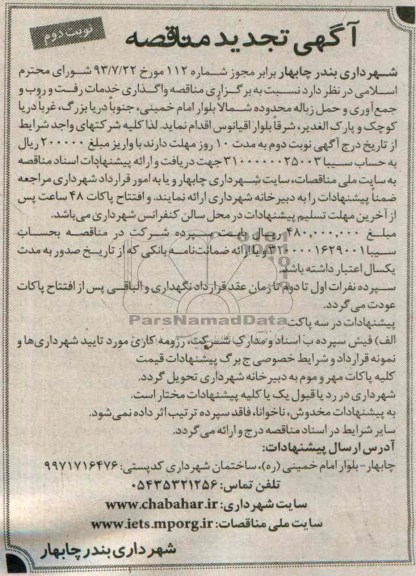 نوبت دوم
آگهی تجدید مناقصه
شهرداری بندر چابهار برابر مجوز شماره ۱۱۲ مورخ ۹۳/۷/۲۲ شورای محترم
اسلامی در نظر دارد نسبت به برگزاری مناقصه واگذاری خدمات رفت و روب و
جمع‌آوری و حمل زباله محدوده شمالاً بلوار امام خمینی، جنوباً دریا بزرگ، غرباً دریا
کوچک و پارک الغدیر، شرقاً بلوار اقیانوس اقدام نماید. لذا کلیه شرکتهای واجد شرایط
از تاریخ درج آگهی نوبت دوم به مدت ۱۰ روز مهلت دارند با واریز مبلغ ۲۰۰۰۰۰۰ ریال
به حساب سیبا ۳۱۰۰۰۰۰۰۲۵۰۰۳ جهت دریافت و ارائه پیشنهادات اسناد مناقصه
به سایت ملی مناقصات، سایت شهرداری چابهار و یا به امور قرارداد شهرداری مراجعه
ضمناً پیشنهادات را به دبیرخانه شهرداری ارائه نمایند. و افتتاح پاکات ۴۸ ساعت پس
از آخرین مهلت تسلیم پیشنهادات در محل سالن کنفرانس شهرداری می‌باشد.
مبلغ ۴۸۰,۰۰۰,۰۰۰ ریال بابت سپرده شرکت در مناقصه بحساب
سیبا و یا ارائه ضمانت‌نامه بانکی که از تاریخ صدور به مدت
یکسال اعتبار داشته باشد.
سپرده نفرات اول تا دوم تا زمان عقد قرارداد نگهداری و الباقی پس از افتتاح پاکات
عودت می‌گردد.
پیشنهادات در سه پاکت:
الف) فیش سپرده ب) اسناد و مدارک شرکت، رزومه کاری مورد تایید شهرداری‌ها و
نمونه قرارداد و شرایط خصوصی ج) برگ پیشنهادات قیمت
کلیه پاکات مهر و موم به دبیرخانه شهرداری تحویل گردد.
شهرداری در رد یا قبول یک یا کلیه پیشنهادات مختار است.
به پیشنهادات مخدوش، ناخوانا، فاقد سپرده ترتیب اثر داده نمی‌شود.
سایر شرایط در اسناد مناقصه درج و ارائه می‌گردد.
آدرس ارسال پیشنهادات:
چابهار- بلوار امام خمینی (ره)، ساختمان شهرداری کدپستی: ۹۹۷۱۷۱۶۴۷۶
تلفن تماس: ۰۵۴۳۵۳۲۱۲۵۶
سایت شهرداری: www.chabahar.ir
سایت ملی مناقصات: www.iets.mporg.ir
شهرداری بندر چابهار
ParsNamadData